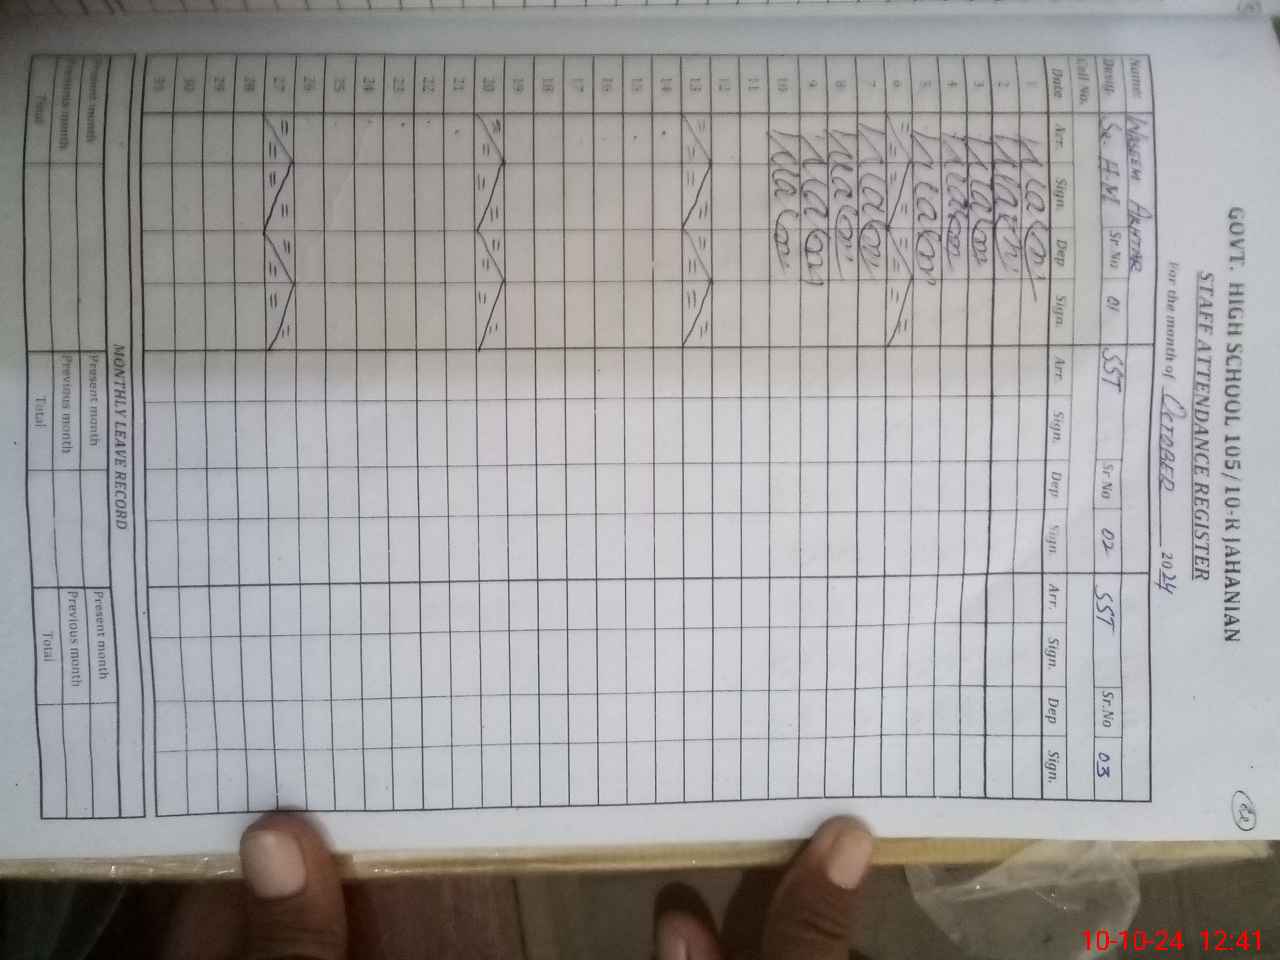 22
GOVT. HIGH SCHOOL 105/10-R JAHANIAN
STAFF ATTENDANCE REGISTER
For the month of OCTOBER 2024
Name: WASEEM AKHTAR
Desig. Se. H.M Sr.No 01 SST Sr.No 02 SST Sr.No 03
Call No.
Date Arr. Sign. Dep Sign. Arr. Sign. Dep Sign. Arr. Sign. Dep Sign.
1
2
3
4
5
6 = = = = = = =
7
8
9
10
11
12
13 = = = = = = =
14
15
16
17
18
19
20 = = = = = = =
21
22
23
24
25
26
27 = = = = = = =
28
29
30
31
MONTHLY LEAVE RECORD
Present month Present month Present month
Previous month Previous month Previous month
Total Total Total
10-10-24 12:41